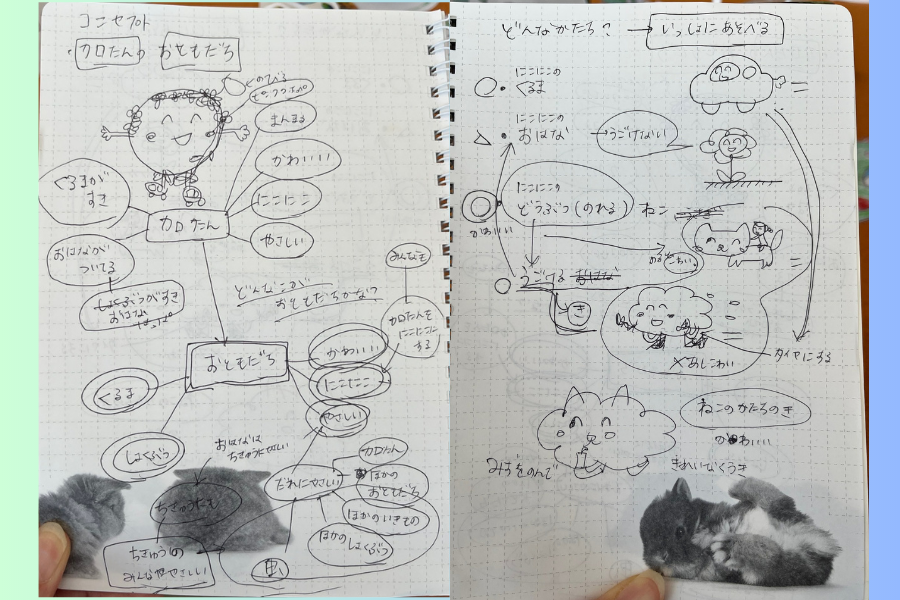 コンセプト
・カロたんの おともだち
まんまる
かわいい
にこにこ
やさしい
くるまが
すき
おはなが
ついてる
カロたん
どんなこが
おともだちかな?
みんなを
カロたんを
にこにこに
する
おともだち
かわいい
にこにこ
やさしい
くるま
しょくぶつ
おはなは
ちきゅうにやさしい
だれにやさしい
カロたん
ほかの
おともだち
ほかのいきもの
ほかの
しょくぶつ
ちきゅうにも
ちきゅうの
みんなにやさしい
どんなかたち? → いっしょにあそべる
にこにこの
くるま
にこにこの
おはな
→うごけない
にこにこの
どうぶつ(のれる)
ねこ
かわいい
うごける
き
タイヤにする
×あしこわい
ねこのかたちのき
かわいい
みずをのんで
きれいなくうき